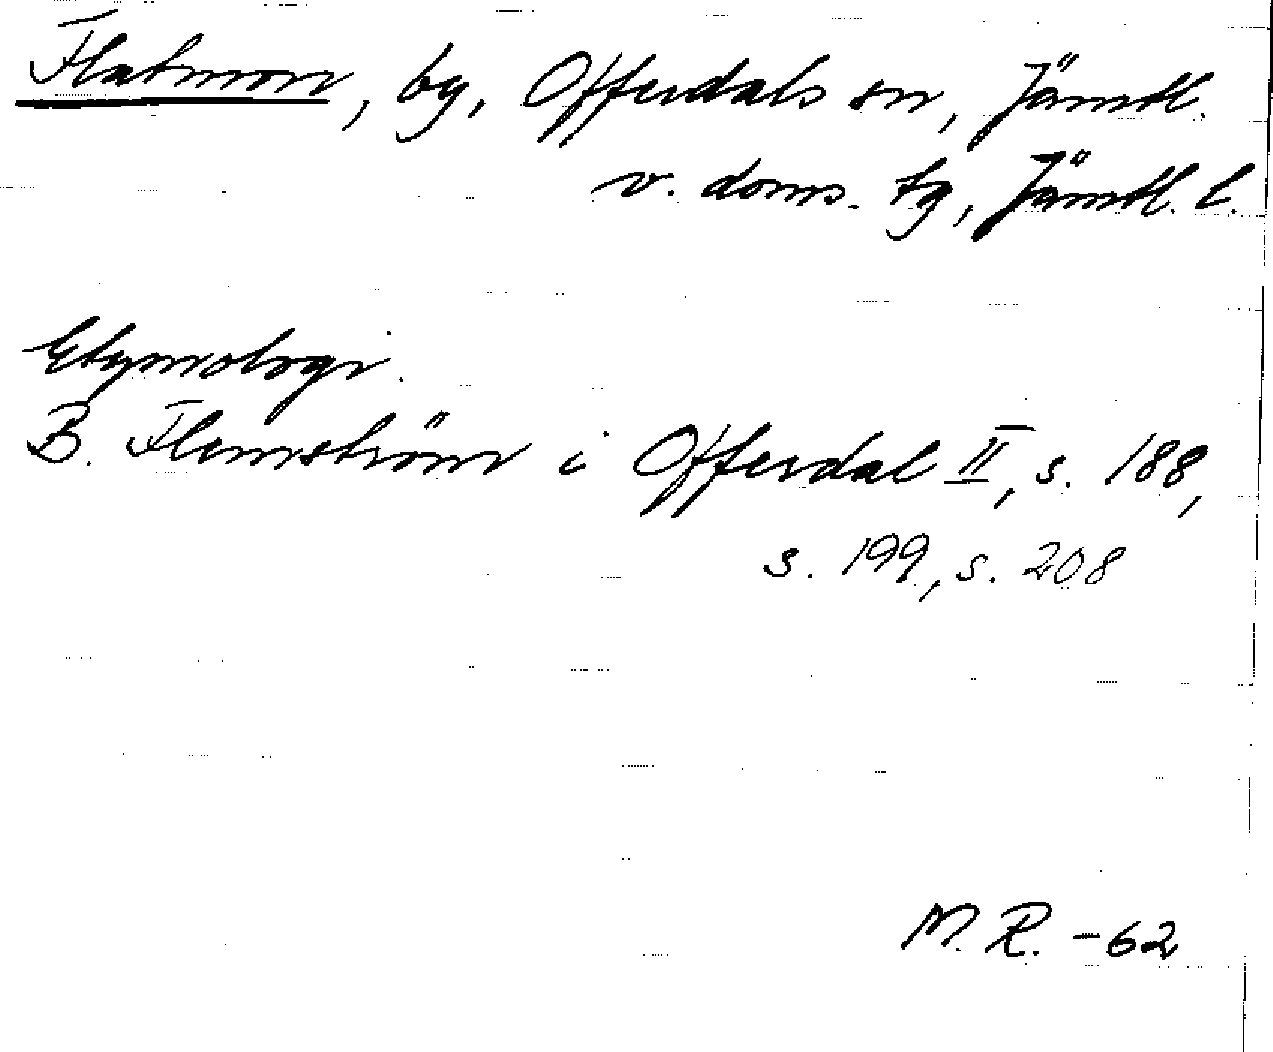 Flatmon, by, Offerdals sn, Jämtl.
v. doms. tg, Jämtl. l.
Etymologi.
B. Flemström i Offerdal II, s. 188,
s. 199, s. 208
M. R. -62